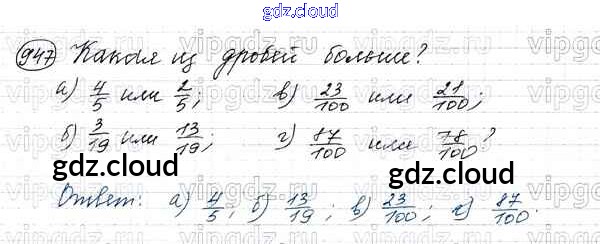 gdz.cloud
947 Какая из дробей больше?
а) 4/5 или 2/5; в) 23/100 или 21/100;
б) 3/19 или 13/19; г) 87/100 или 78/100?
gdz.cloud gdz.cloud
Ответ: а) 4/5; б) 13/19; в) 23/100; г) 87/100.